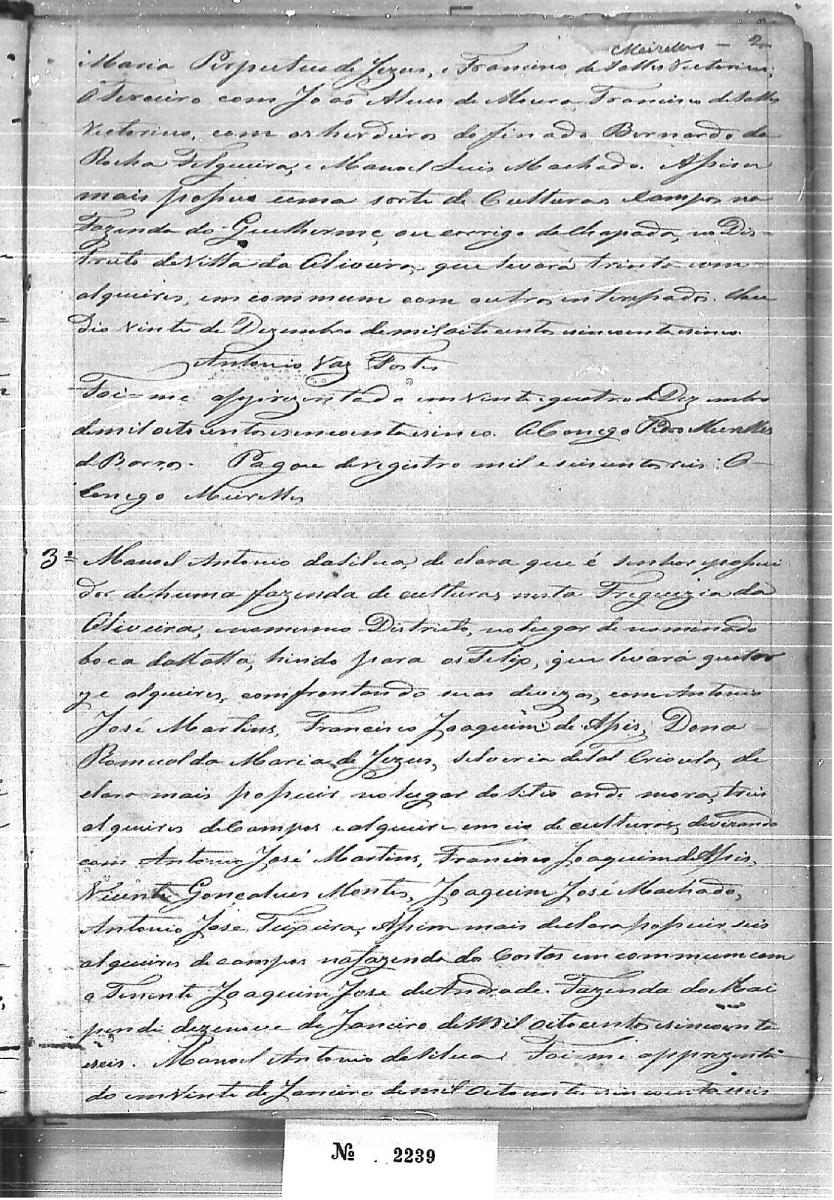 Meirelles - 2
Maria Perpetua de Jezus, e Francisco de Salles Victorino;
O terceiro com João Alves de Moura Francisco de Salles
Victorino, com os herdeiros do finado Bernardo da
Rocha Felgueira, e Manoel Luis Machado. Assim
mais possue uma sorte de Culturas e campos na
Fazenda do Guilherme, ou corrigo da Chapada, no Dis-
tricto de Villa da Oliveira, que levará trinta
alqueires, em commum com outros interessados.
Dia vinte de Dezembro de mil oito centos sincoenta e sinco.
Antonio Vaz Fortes
Foi-me apprezentado em vinte quatro de Dezembro
de mil oito centos e sincoenta e sinco. O Conego Pedro Meirelles
de Barros. Pagou de registro mil e reis. O
Conego Meirelles
3º Manoel Antonio da Silva, declara que é senhor e possui
dor de huma fazenda de culturas nesta Freguezia da
Oliveira, e no mesmo Districto, no lugar denominado
boca da Matta, hindo para os Felix, que levará quator
ze alqueires, confrontando suas devizas, com Antonio
José Martins, Francisco Joaquim de Assis, Dona
Romualda Maria de Jezus, Silveria de Tal Crioula, de
clara mais possuir no lugar do Sitio onde mora, tres
alqueires de Campos e alqueire e meio de culturas, devizando
com Antonio José Martins, Francisco Joaquim de Assis,
Vicente Gonçalves Montes, Joaquim José Machado,
Antonio José Teixeira, Assim mais declara possuir seis
alqueires de campos na fazenda do Costas em commum com
o Tenente Joaquim José de Andrade. Fazenda do Mai
pende dezenove de Janeiro de Mil oito centos e sincoenta
e seis. Manoel Antonio da Silva. Foi-me apprezenta
do em Vinte de Janeiro de mil oito centos sincoenta e seis
Nº 2239